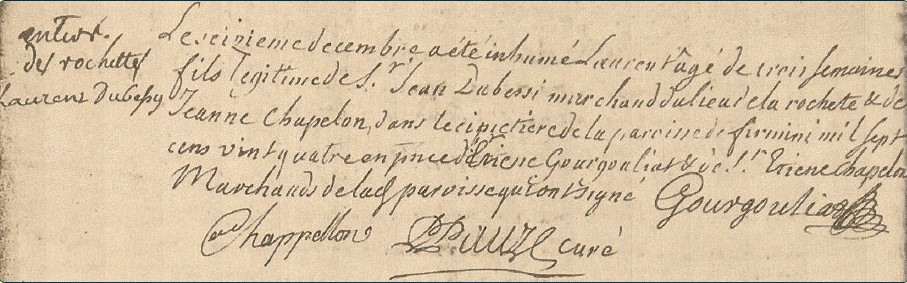 enterr.
des rochettes
Laurens Dubessy
Le seizieme decembre a eté inhumé Laurent agé de trois semaines
fils legitime de Sr. Jean Dubessi marchand du lieu de la rochete & de
Jeanne Chapelon, dans le cimetiere de la paroisse de firmini mil sept
cens vint quatre en pnce d'Etiene Gourgouliat & de Sr. Etiene Chapelon
Marchands de lad paroisse qui ont signé Gourgouliat
Chappellon curé